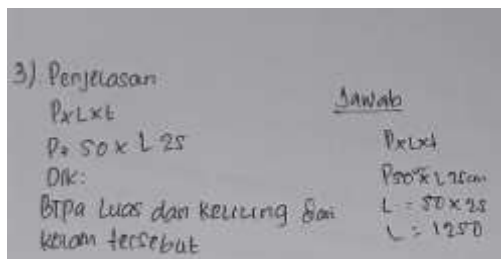 3) Penjelasan
PxLxt
P= 50 x L 25
DIK:
BTPa Luas dan keliling dari
kolam tersebut
Jawab
PxLxt
P50 x L 25cm
L = 50 x 25
L = 1250